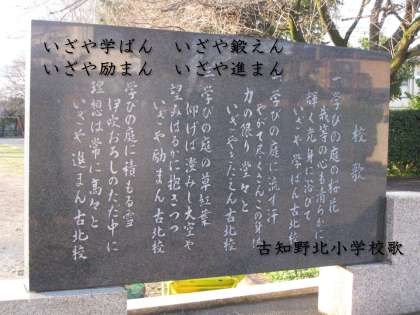 いざや学ばん　いざや鍛えん
いざや励まん　いざや進まん
校歌
一 学びの庭の桜花
我等の心も清らかに
輝く光身に浴びて
いざや 学ばん古北校
学びの庭に流す汗
やがて尽くさんこの身に
力の限り 堂々と
いざや きたえん古北校
学びの庭の草紅葉
仰げば澄みし大空や
望みはるかに抱きつつ
いざや 励まん古北校
学びの庭に積もる雪
伊吹おろしのただ中に
理想は常に高々と
いざや 進まん古北校
古知野北小学校歌